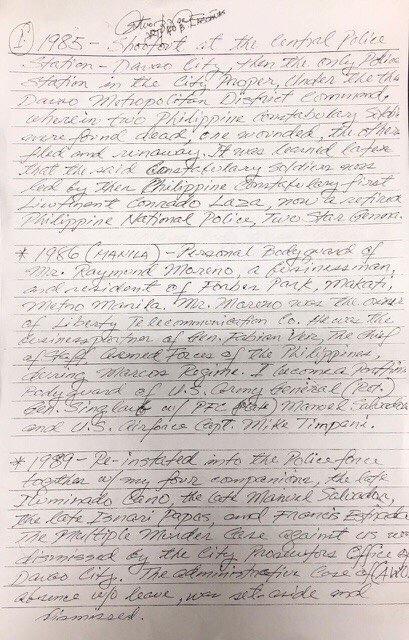 1985 - Shootout at the Central Police
Station - Davao City, then the only Police
Station in the City Proper, Under the then
Davao Metropolitan District Command,
wherein two Philippine Constabulary Soldiers
were found dead, one wounded, the others
fled and runaway. It was learned later
that the said Constabulary Soldiers was
led by then Philippine Constabulary first
Lieutenant Conrado Laza, now a retired
Philippine National Police, Two Star General.
* 1986 (MANILA) - Personal Bodyguard of
Mr. Raymond Moreno, a businessman,
and resident of Forbes Park, Makati,
Metro Manila. Mr. Moreno was the owner
of Liberty Telecommunication Co. He was the
businesspartner of Gen. Fabian Ver, the Chief
of Staff Armed Forces of the Philippines,
during Marcos Regime. I become a part time
bodyguard of U.S. Army General (Ret.)
Gen. Singlaub w/ PFC Manuel Salvador
and U.S. Airforce Capt. Mike Timpani.
* 1989 - Re-instated into the Police force
together w/ my four companions, the late
Iluminado Cano, the late Manuel Salvador,
the late Ismari Papas, and Francis Estrada
The Multiple Murder Case against us was
dismissed by the City Prosecutors Office of
Davao City. The administrative Case of (AWOL
absence w/o leave, was set-aside and
dismissed.